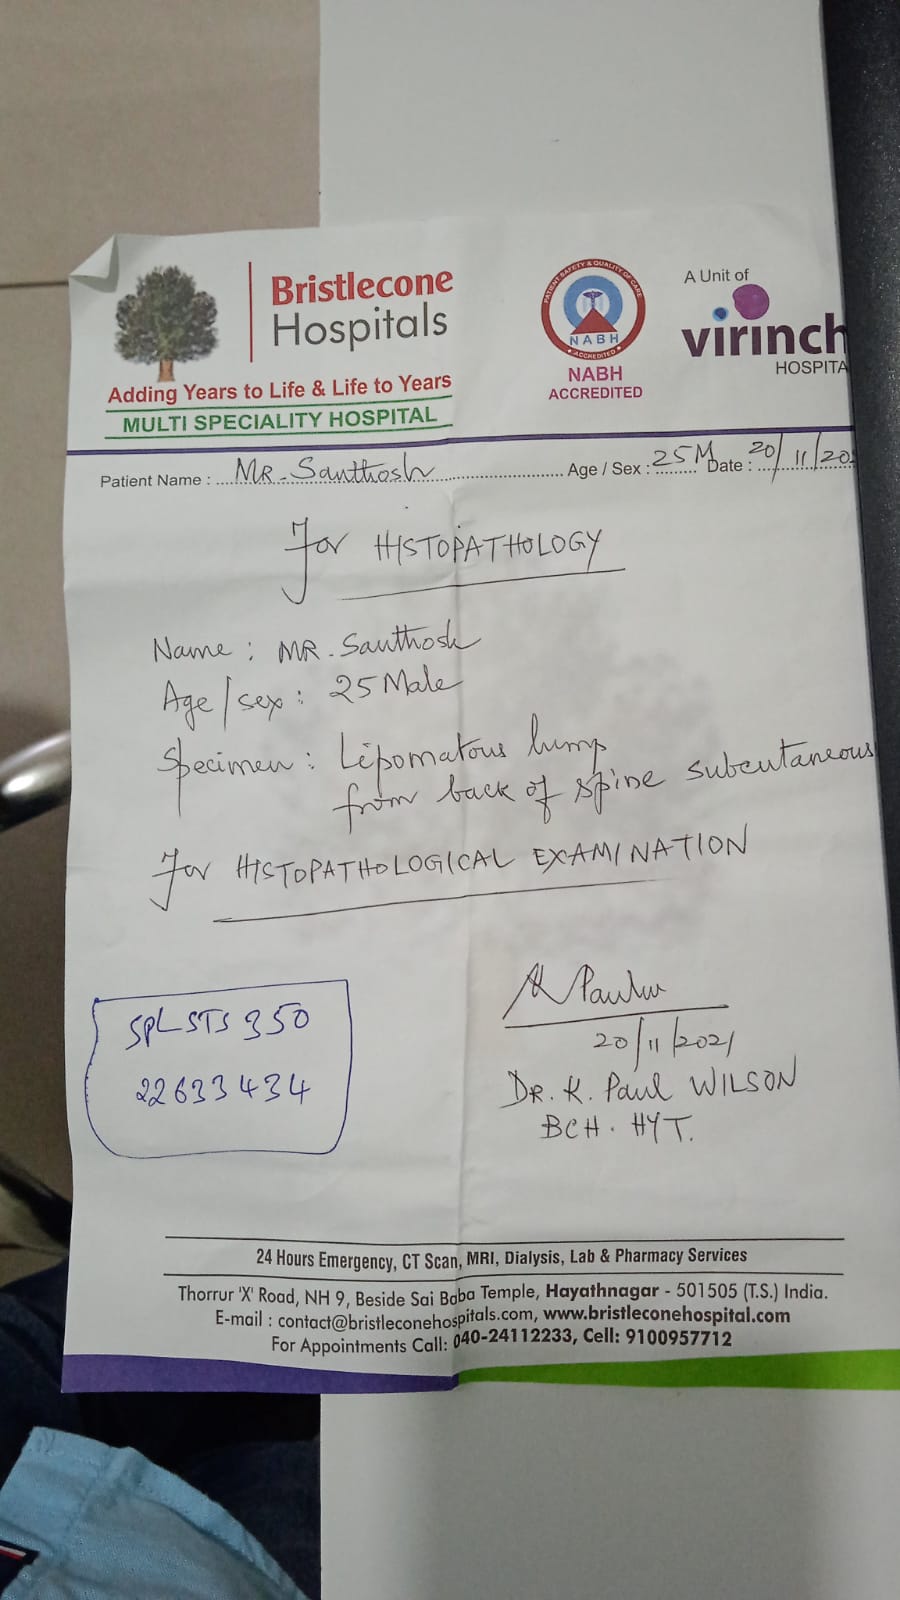 Bristlecone
Hospitals
Adding Years to Life & Life to Years
MULTI SPECIALITY HOSPITAL
PATIENT SAFETY & QUALITY OF CARE
NABH
ACCREDITED
NABH
ACCREDITED
A Unit of
virinch
HOSPITA
Patient Name : MR. Santhosh Age / Sex : 25 M Date : 20/11/20
For HISTOPATHOLOGY
Name : MR. Santhosh
Age/sex : 25 Male
Specimen : Lipomatous lump
from back of spine subcutaneous
For HISTOPATHOLOGICAL EXAMINATION
SPL STS 350
22633434
20/11/2021
DR. K. Paul WILSON
BCH. HYT.
24 Hours Emergency, CT Scan, MRI, Dialysis, Lab & Pharmacy Services
Thorrur 'X' Road, NH 9, Beside Sai Baba Temple, Hayathnagar - 501505 (T.S.) India.
E-mail : contact@bristleconehospitals.com, www.bristleconehospital.com
For Appointments Call: 040-24112233, Cell: 9100957712